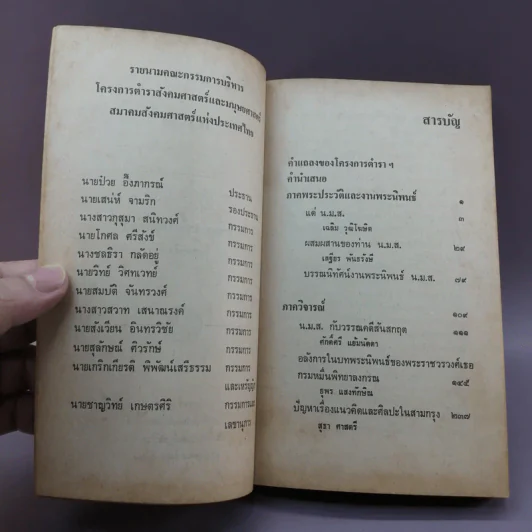 รายนามคณะกรรมการบริหาร
โครงการตำราสังคมศาสตร์และมนุษยศาสตร์
สมาคมสังคมศาสตร์แห่งประเทศไทย
นายป๋วย อึ๊งภากรณ์ ประธาน
นายเสน่ห์ จามริก รองประธาน
นางสาวกุสุมา สนิทวงศ์ กรรมการ
นายโกศล ศรีสังข์ กรรมการ
นางชลธิรา กลัดอยู่ กรรมการ
นายวิทย์ วิศทเวทย์ กรรมการ
นายสมบัติ จันทรวงศ์ กรรมการ
นางสาวสวาท เสนาณรงค์ กรรมการ
นายสังเวียน อินทรวิชัย กรรมการ
นายสุลักษณ์ ศิวรักษ์ กรรมการ
นายเกริกเกียรติ พิพัฒน์เสรีธรรม กรรมการ
และเหรัญญิก
นายชาญวิทย์ เกษตรศิริ กรรมการและ
เลขานุการ
สารบัญ
คำแถลงของโครงการตำรา ฯ
คำนำเสนอ
ภาคพระประวัติและงานพระนิพนธ์ ๑
แด่ น.ม.ส. ๓
เฉลิม วุฒิโฆษิต
ผสมผสานของท่าน น.ม.ส. ๒๙
เสฐียร พันธรังษี
บรรณนิทัศน์งานพระนิพนธ์ น.ม.ส. ๗๙
ภาควิจารณ์ ๑๐๙
น.ม.ส. กับวรรณคดีสันสกฤต ๑๑๑
ศักดิ์ศรี แย้มนัดดา
อลังการในบทพระนิพนธ์ของพระราชวรวงศ์เธอ
กรมหมื่นพิทยาลงกรณ ๑๔๕
ยุพร แสงทักษิณ
ปัญหาเรื่องแนวคิดและศิลปะในสามกรุง ๒๓๗
สุธา ศาสตรี